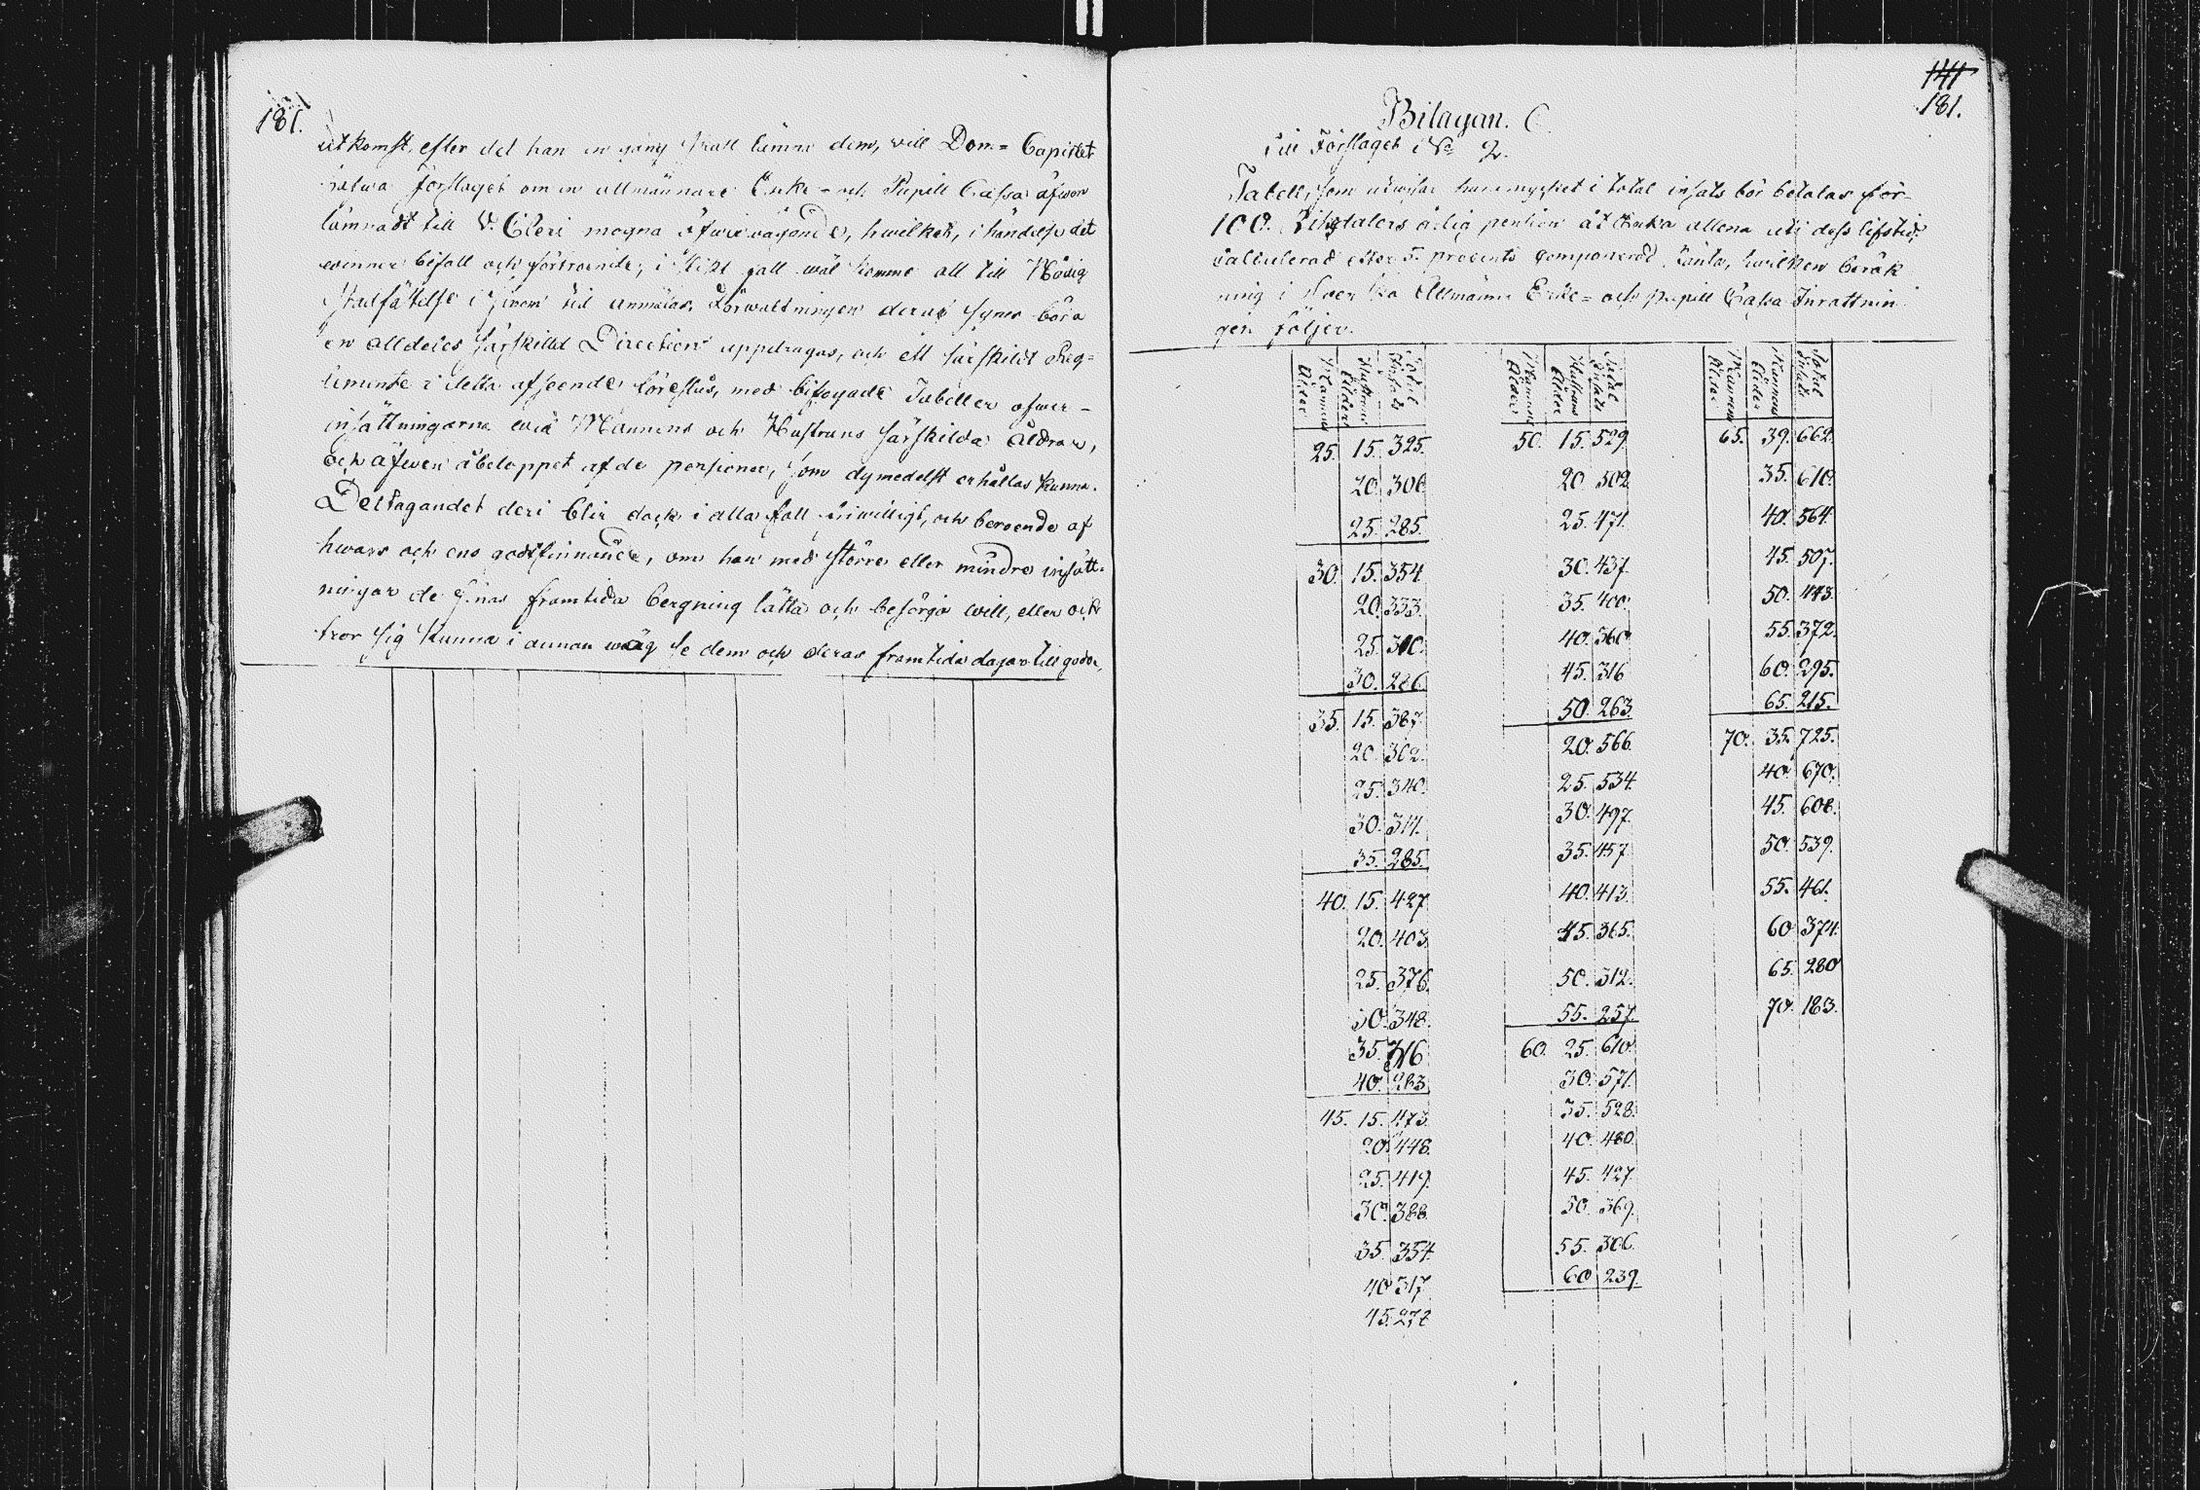 181.
utkomst, efter det han en gång skall lämna dem, will Dom= Capitlet
förslaget om en allmännare Enke- och Pupill Cassa äfwen
lämnadt till V. Cleri mogna öfwerwägande, hwilket, i händelse det
winner bifall och förtroende, i slikt fall wäl komme att till Nådig
Stadfästelse i sinom tid anmälas. Förwaltningen deraf synes böra
en alldeles särskilld Direction uppdragas, och ett särskildt Reg=
lemente i detta afseende föreslås, med bifogade Tabeller öfwer
insättningarna ewid Mannens och Hustruns särskilda åldrar,
och äfwen åbeloppet af de pensioner, som dymedelst erhållas kunna.
Deltagandet deri blir dock i alla fall friwilligt, och beroende af
hwars och ens godtfinnande, om han med större eller mindre insätt=
ningar de sinas framtida bergning lätta och besörja will, eller och
tror sig kunna i annan wäg se dem och deras framtida dagar till godo.
141
181.
Bilagan. C.
till Förslaget No 2.
Tabell, som utwisar huru mycket i total insats bör betalas för
100. Riksdalers årlig pention åt Enka allena uti dess lifstid,
calculerad efter 5. procents componerad ränta, hwilken beräk
ning i Swenska Allmänna Enke= och pupill Cassa Inrättnin
gen följer.
Mannens Ålder Hustruns Ålder Total Insats
25. 15. 325.
20. 306.
25. 285.
30. 15. 354.
20. 333.
25. 310.
30. 286.
35. 15. 387.
20. 362.
25. 340.
30. 314.
35. 285.
40. 15. 427.
20. 403.
25. 376.
30. 348.
35. 316
40. 283
45. 15. 473.
20. 448.
25. 419.
30. 388.
35. 354.
40 317
45. 278
Mannens Ålder Hustruns Ålder Total Insats
50. 15. 529.
20. 502
25. 471.
30. 437.
35. 400.
40. 360.
45. 316
50. 263.
20. 566.
25. 534.
30. 497.
35. 457.
40. 413.
45. 365.
50. 312.
55. 257.
60. 25. 610.
30. 571.
35. 528.
40. 480.
45. 427.
50. 369.
55. 306.
60 239.
Mannens Ålder Ålder Total Insats
65. 39. 662.
35. 610.
40. 564.
45. 507.
50. 443.
55. 372.
60. 295.
65. 215.
70. 35. 725.
40. 670.
45. 608.
50. 539.
55. 461.
60 374.
65. 280
70. 183.